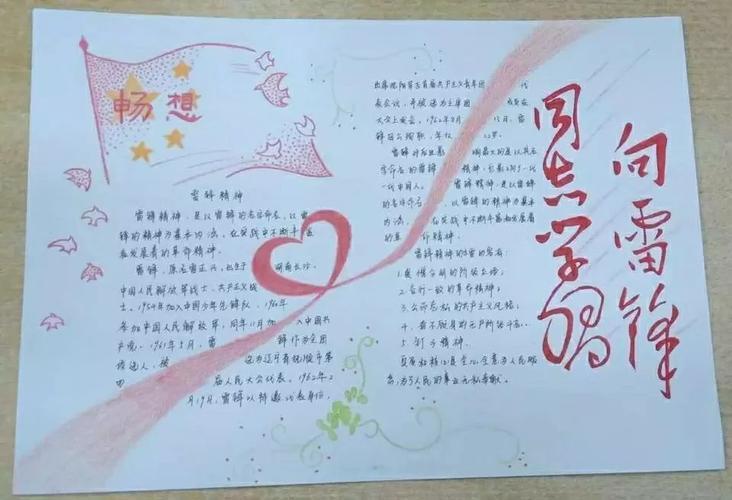 畅想
雷锋精神
雷锋精神,是以雷锋的名字命名、以雷
锋的精神为基本内涵、在实践中不断丰富
和发展着的革命精神。
雷锋,原名雷正兴,出生于 湖南长沙,
中国人民解放军战士、共产主义战
士。1954年加入中国少年先锋队,1960年
参加中国人民解放军,同年11月加 入中国共
产党。1961年5月,雷 锋作为全团
候选人,被 选为辽宁省抚顺市第
四 届人民大会代表。1962年2
月19日,雷锋以特邀代表身份,
出席沈阳军区首届共产主义青年团 代
表会议,并被选为主席团 成员在
大会上发言。1962年8月 15日,雷
锋因公殉职,年仅 22岁。
雷锋对后世影 响最大的是以其名
字命名的雷锋 精神,影响了一代
一代中国人。 雷锋精神,是以雷锋
的名字命名 、以雷锋的精神为基本
内涵、 在实践中不断丰富和发展着
的革 命精神。
雷锋精神的 内容有:
1.爱憎分明的阶级立场;
2.言行一致的革命精神;
3.公而忘私的共产主义风格;
4.奋不顾身的无产阶级斗志;
5.钉子精神。
全心全意为人民服
务,为了人民的事业无私奉献。
向雷锋
同志学习